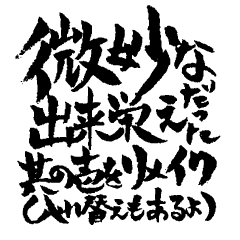 微妙な
出来栄えだった
其の壱をリメイク
(入れ替えもあるよ)